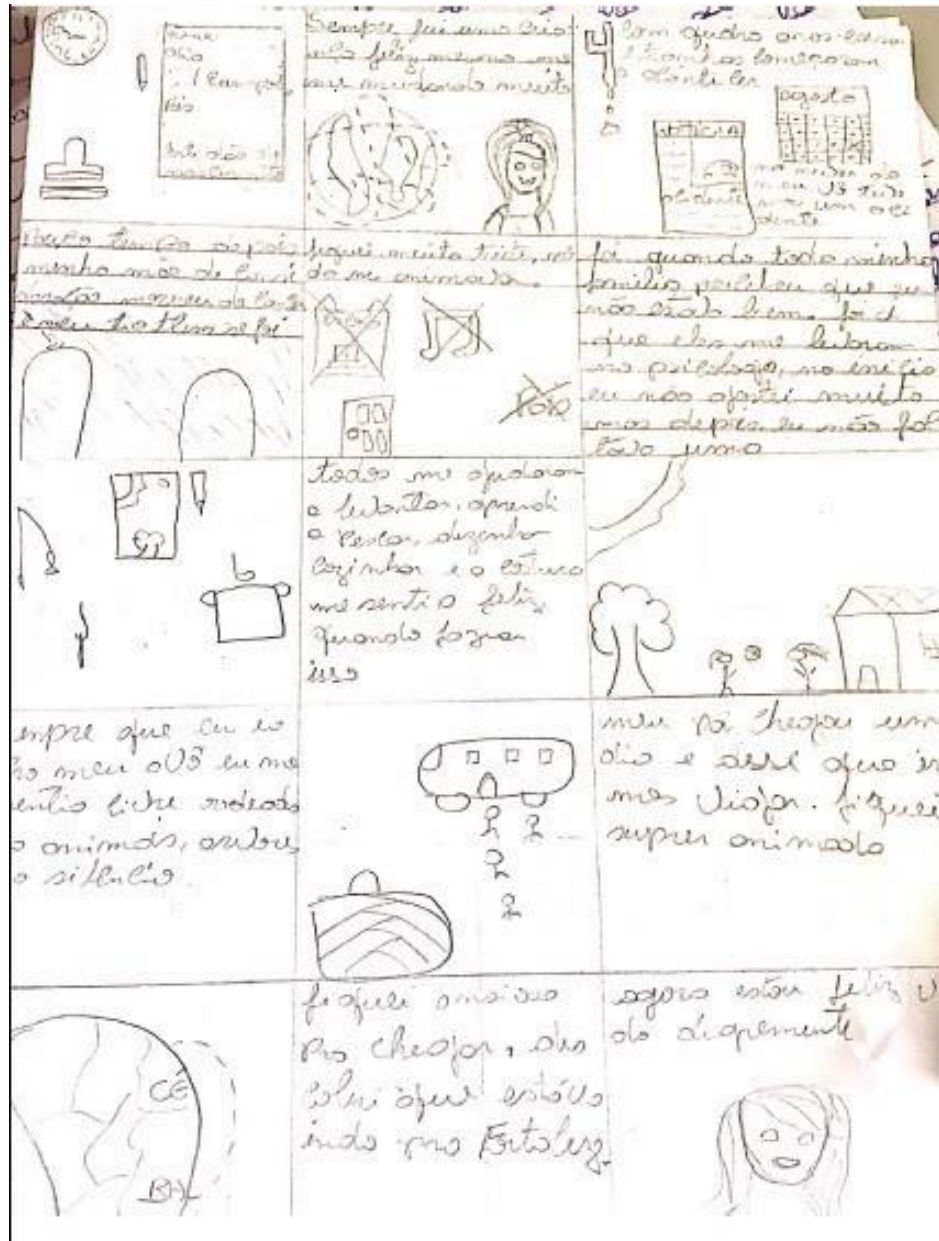 nome
Dia
Sempre fui uma cria
nça feliz mesmo me
me mudando muito
4
Com quatro anos coisas
estranhas começaram
a acontecer
agosto
NOTÍCIA
acidente
meu VÔ teve
um aci
dente
Pouco tempo depois
minha mãe de consi
deração morreu
e meu tio tbem se foi
fiquei muito triste, na
da me animava.
foi quando toda minha
familia percebeu que eu
não estava bem. foi ai
que eles me levaram
no psicologo, no inicio
eu não gostei muito
mas depois eu não fal
tava uma
todos me ajudaram
a levantar, aprendi
a pescar, dezenho
cozinhar e a
me sentia feliz
quando fazia
isso
empre que eu ia
no meu vÔ eu me
entia livre rodeada
animais, arvores
o silencio.
meu pai chegou um
dia e disse que ir
mos viajar. fiquei
super animada
CE
BH
fiquei ansiosa
pra chegar, des
cobri que estava
indo pra Fortaleza.
agora estou feliz v
do alegremente